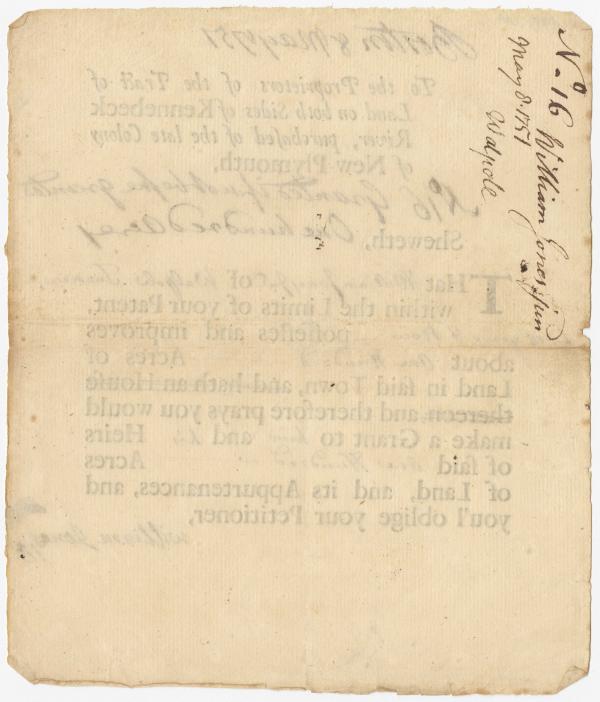 No. 16 William Jones jun
May 8. 1751
Walpole
Boston 8 May 1751
To the Proprietors of the Tract of
Land on both Sides of Kennebeck
River, purchased of the late Colony
of New Plymouth,
No 16 Granted
One hundred acres
Sheweth,
THat William Jones of Walpole
within the Limits of your Patent,
possesses and improves
about One Hundred Acres of
Land in said Town, and hath an House
thereon, and therefore prays you would
make a Grant to him and his Heirs
of said One Hundred Acres
of Land, and its Appurtenances, and
you'l oblige your Petitioner,
William Jones